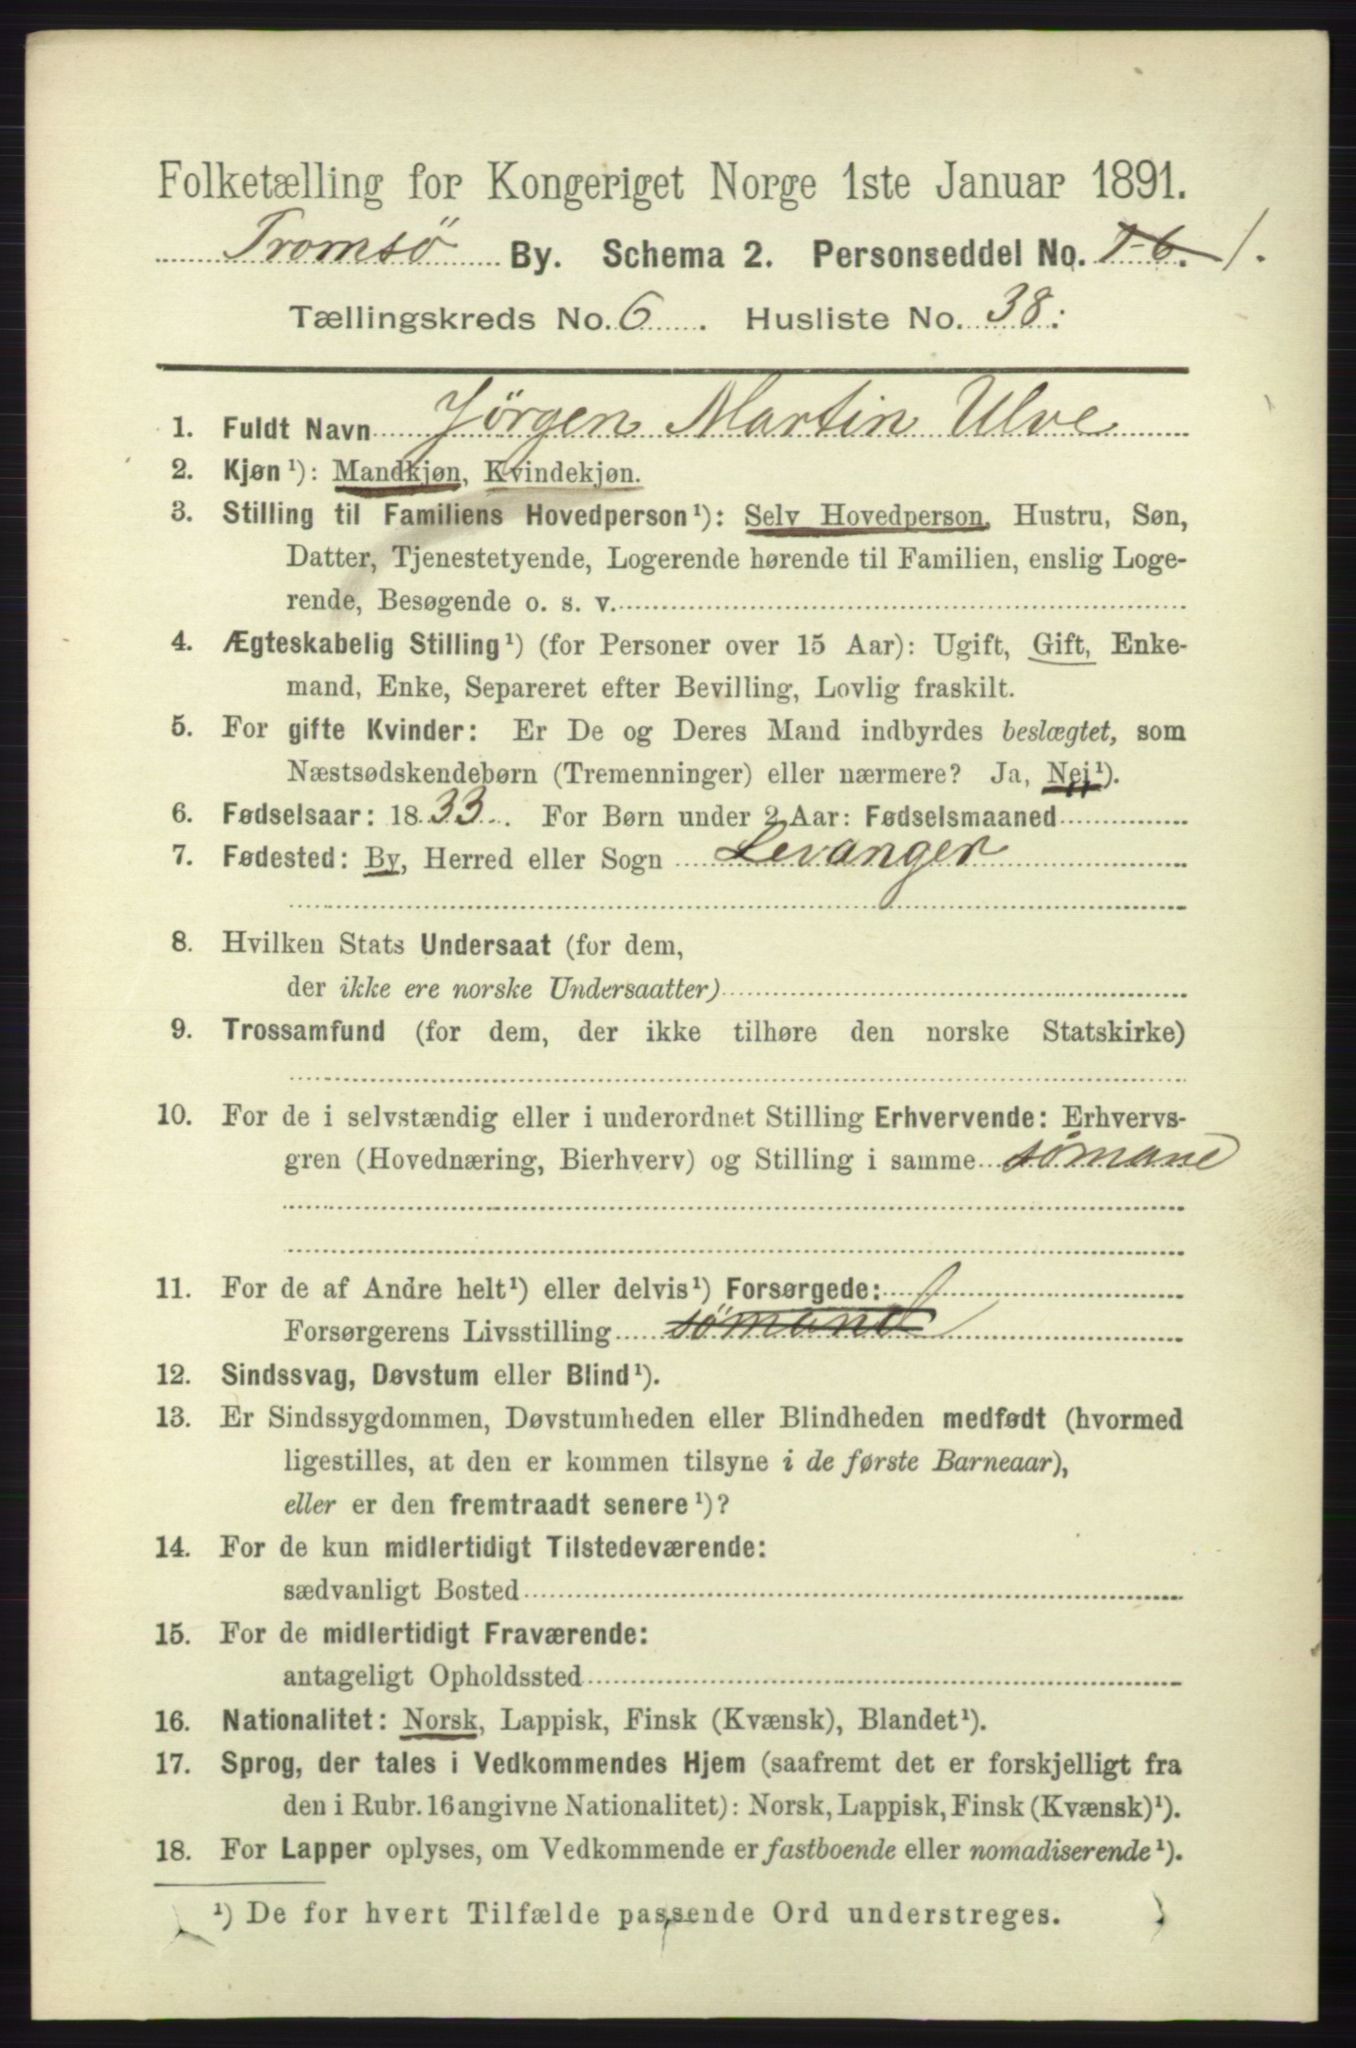 Folketælling for Kongeriget Norge 1ste Januar 1891.
Tromsö By. Schema 2. Personseddel No. 1.
Tællingskreds No. 6. Husliste No. 38:
1. Fuldt Navn Jörgen Martin Ulve
2. Kjøn¹): Mandkjøn, Kvindekjøn.
3. Stilling til Familiens Hovedperson¹): Selv Hovedperson, Hustru, Søn,
Datter, Tjenestetyende, Logerende hørende til Familien, enslig Loge-
rende, Besøgende o. s. v.
4. Ægteskabelig Stilling¹) (for Personer over 15 Aar): Ugift, Gift, Enke-
mand, Enke, Separeret efter Bevilling, Lovlig fraskilt.
5. For gifte Kvinder: Er De og Deres Mand indbyrdes beslægtet, som
Næstsødskendebørn (Tremenninger) eller nærmere? Ja, Nei¹).
6. Fødselsaar: 1833. For Børn under 2 Aar: Fødselsmaaned
7. Fødested: By, Herred eller Sogn Levanger
8. Hvilken Stats Undersaat (for dem,
der ikke ere norske Undersaatter)
9. Trossamfund (for dem, der ikke tilhøre den norske Statskirke)
10. For de i selvstændig eller i underordnet Stilling Erhvervende: Erhvervs-
gren (Hovednæring, Bierhverv) og Stilling i samme sömand
11. For de af Andre helt¹) eller delvis¹) Forsørgede:
Forsørgerens Livsstilling sömand
12. Sindssvag, Døvstum eller Blind¹).
13. Er Sindssygdommen, Døvstumheden eller Blindheden medfødt (hvormed
ligestilles, at den er kommen tilsyne i de første Barneaar),
eller er den fremtraadt senere¹)?
14. For de kun midlertidigt Tilstedeværende:
sædvanligt Bosted
15. For de midlertidigt Fraværende:
antageligt Opholdssted
16. Nationalitet: Norsk, Lappisk, Finsk (Kvænsk), Blandet¹).
17. Sprog, der tales i Vedkommendes Hjem (saafremt det er forskjelligt fra
den i Rubr. 16 angivne Nationalitet): Norsk, Lappisk, Finsk (Kvænsk)¹).
18. For Lapper oplyses, om Vedkommende er fastboende eller nomadiserende¹).
¹) De for hvert Tilfælde passende Ord understreges.